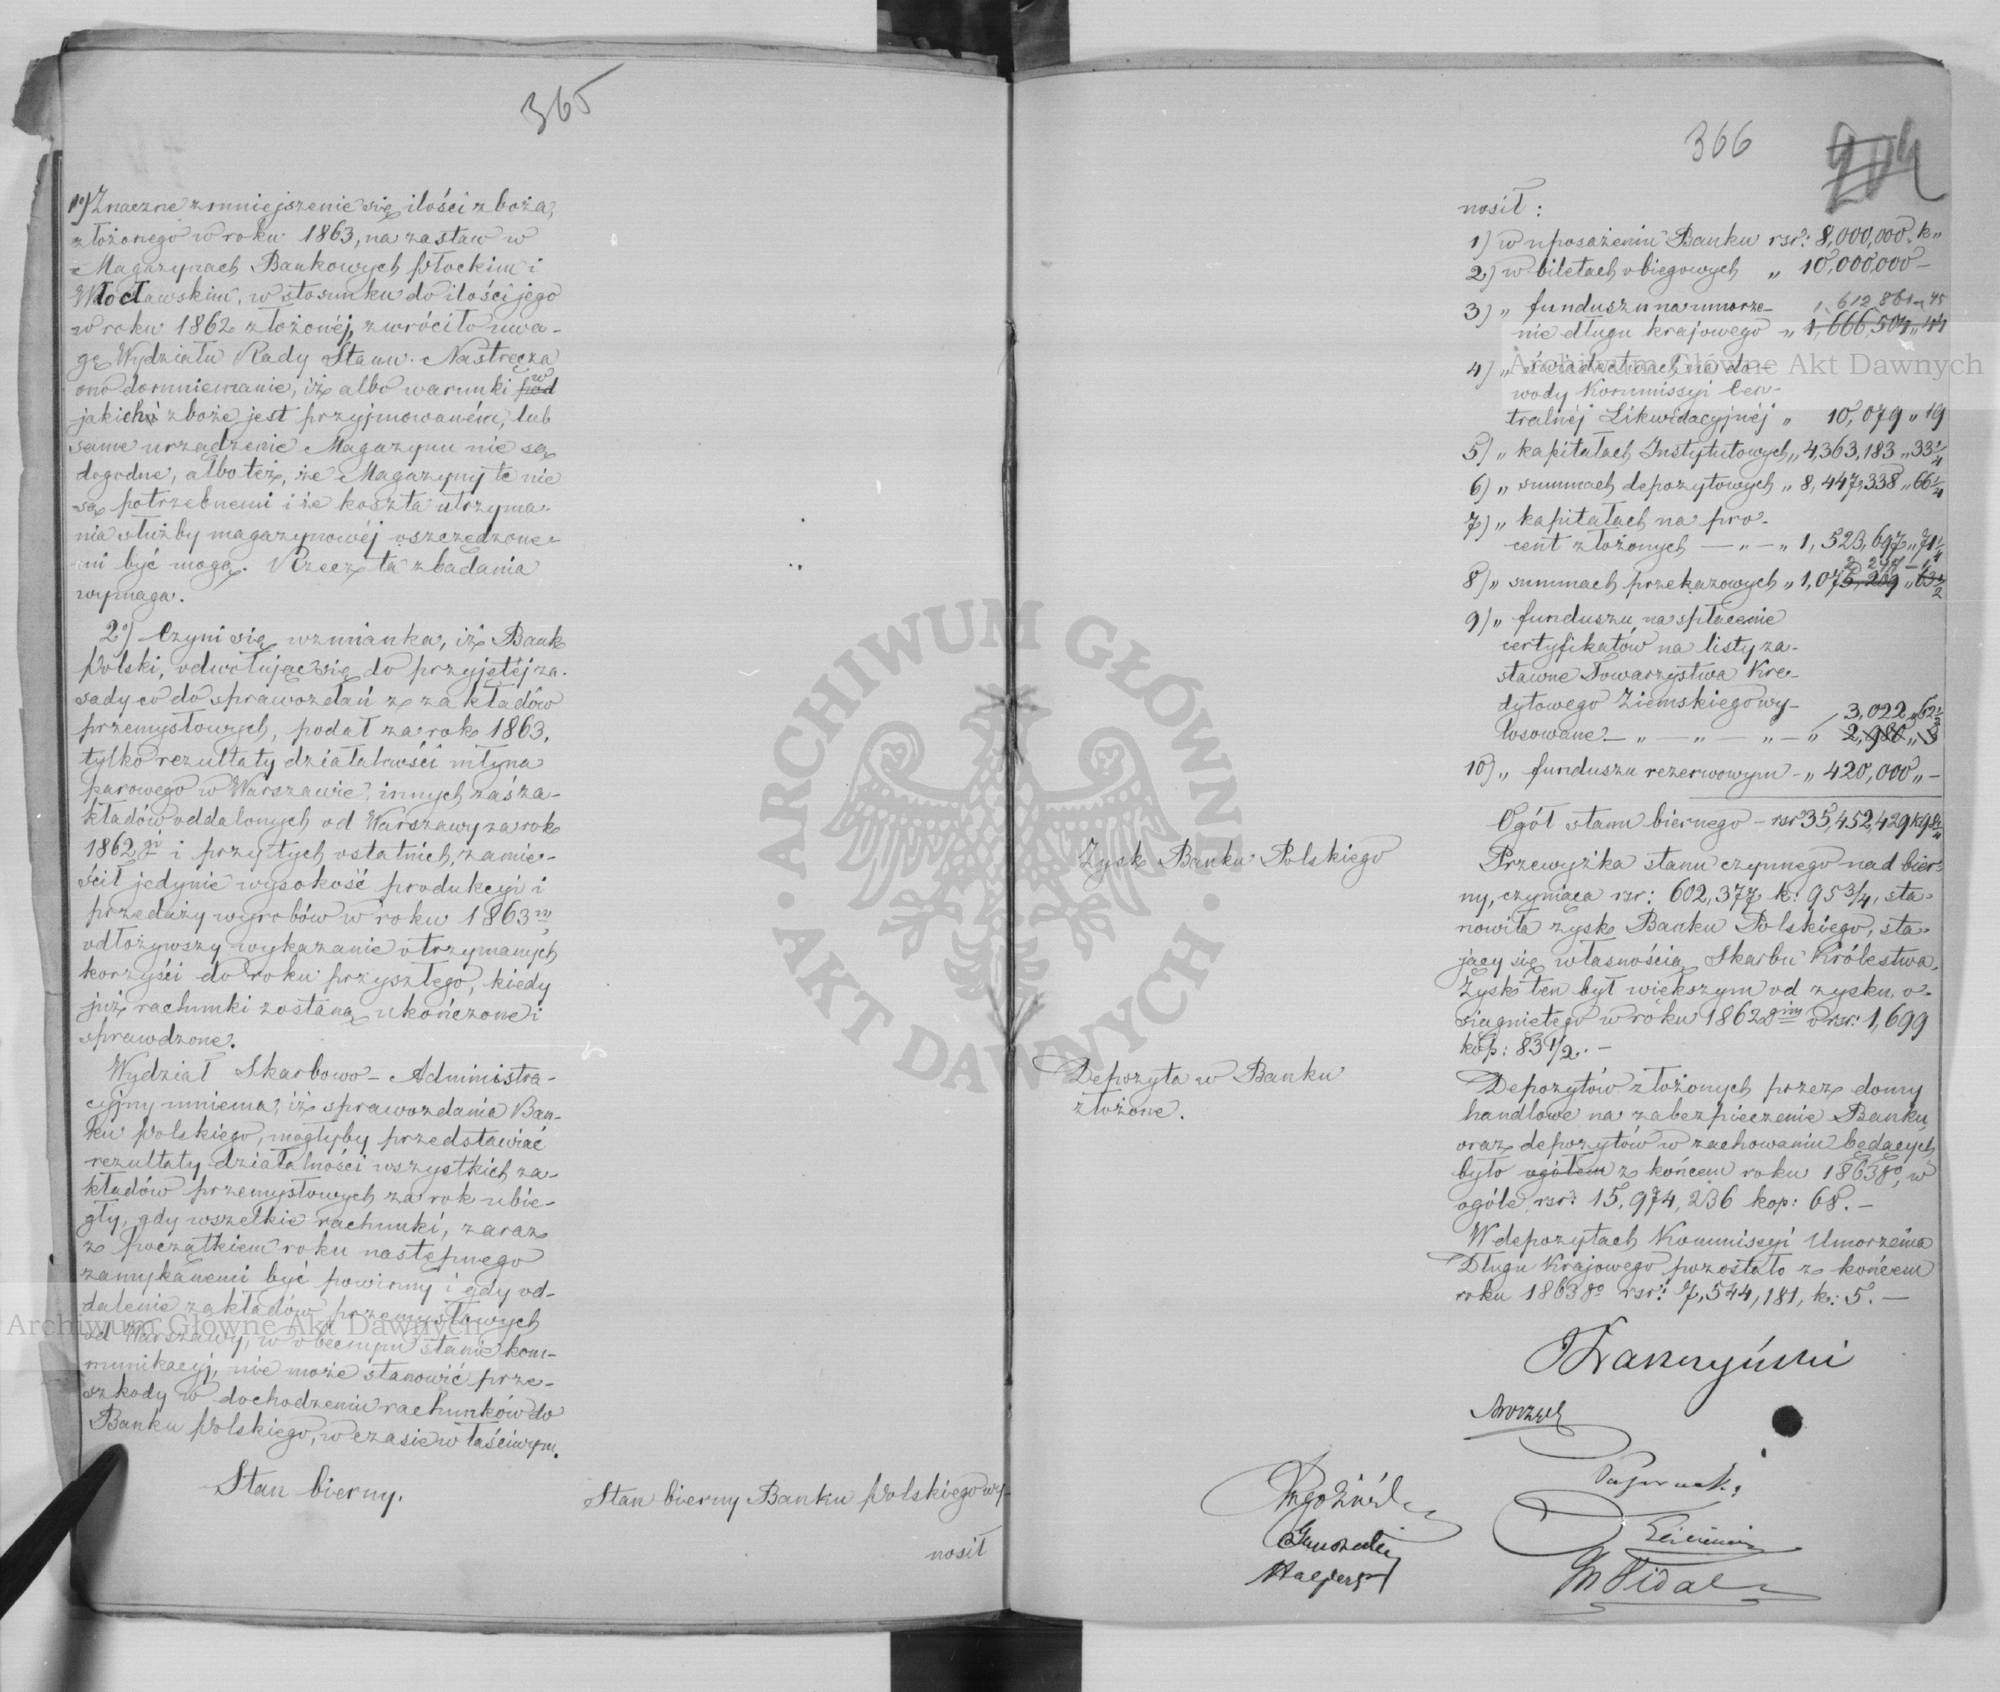 365
1o) Znaczne zmniejszenie się ilości zboża,
złożonego w roku 1863, na zastaw w
Magazynach Bankowych Płockim i
Włocławskim, w stosunku do ilości jego
w roku 1862 złożonéj, zwróciło uwa-
gę Wydziału Rady Stanu. Nastręcza
ono domniemanie, iż albo warunki pod w
jakich zboże jest przyjmowaném, lub
same urządzenie Magazynu nie są
dogodne, albo też, że Magazyny te nie
są potrzebnemi i że koszta utrzyma-
nia służby magazynowéj oszczędzone-
mi być mogą. Rzecz ta zbadania
wymaga.
2o) Czyni się wzmianka, iż Bank
Polski, odwołując się do przyjętéj za-
sady co do sprawozdań z zakładów
przemysłowych, podał za rok 1863,
tylko rezultaty działalności młyna
parowego w Warszawie, innych zaś za-
kładów oddalonych od Warszawy za rok
1862gi i przy tych ostatnich, zamie-
ścił jedynie wysokość produkcyi i
przedaży wyrobów w roku 1863m,
odłożywszy wykazanie otrzymanych
korzyści do roku przyszłego, kiedy
już rachunki zostaną ukończone i
sprawdzone.
Wydział Skarbowo-Administra-
cyjny mniema, iż sprawozdania Ban-
ku Polskiego, mogłyby przedstawiać
rezultaty działalności wszystkich za-
kładów przemysłowych za rok ubie-
gły, gdy wszelkie rachunki, zaraz
z początkiem roku następnego
zamykanemi być powinny i gdy od-
dalenie zakładów przemysłowych
od Warszawy, w obecnym stanie kom-
munikacyj, nie może stanowić prze-
szkody w dochodzeniu rachunków do
Banku Polskiego, w czasie właściwym.
Stan bierny.
Stan bierny Banku Polskiego wy-
nosił
366
204
nosił:
1) w uposażeniu Banku rsr: 8,000,000 k„
2) w biletach obiegowych „ 10,000,000 –
3) „ funduszu na umorze- 1,612,861 „ 45
nie długu krajowego „ 1,666,504 „ 44
4) „ świadectwach na do-
wody Kommissyi Cen-
tralnéj Likwidacyjnéj „ 10,079 „ 19
5) „ kapitałach Instytutowych „ 4,363,183 „ 33 1/4
6) „ summach depozytowych „ 8,447,338 „ 66 1/4
7) „ kapitałach na pro-
cent złożonych — „ — „ 1,523,697 „ 71 1/4
8) „ summach przekazowych „ 1,07
9) „ funduszu na spłacenie
certyfikatów na listy za-
stawne Towarzystwa Kre-
dytowego Ziemskiego wy- 3,022 „ 62 1/2
losowane — „ — „ — „ — „ 2,980 „ 3
10) „ funduszu rezerwowym – „ 420,000 „ –
Ogół stanu biernego – rsr 35,452,429 k
Zysk Banku Polskiego
Przewyżka stanu czynnego nad bier-
ny, czyniąca rsr: 602,377 k: 95 3/4, sta-
nowiła zysk Banku Polskiego, sta-
jący się własnością Skarbu Królestwa.
Zysk ten był większym od zysku, o-
siągniętego w roku 1862gim o rsr: 1,699
kop: 83 1/2. –
Depozyta w Banku
złożone.
Depozytów złożonych przez domy
handlowe na zabezpieczenie Banku,
oraz depozytów w zachowaniu będących
było ogółem z końcem roku 1863go, w
ogóle rsr: 15,974,236 kop: 68. –
W depozytach Kommissyi Umorzenia
Długu Krajowego pozostało z końcem
roku 1863go rsr: 7,544,181, k: 5. –
ARCHIWUM GŁÓWNE
AKT DAWNYCH
Archiwum Główne Akt Dawnych
Archiwum Główne Akt Dawnych